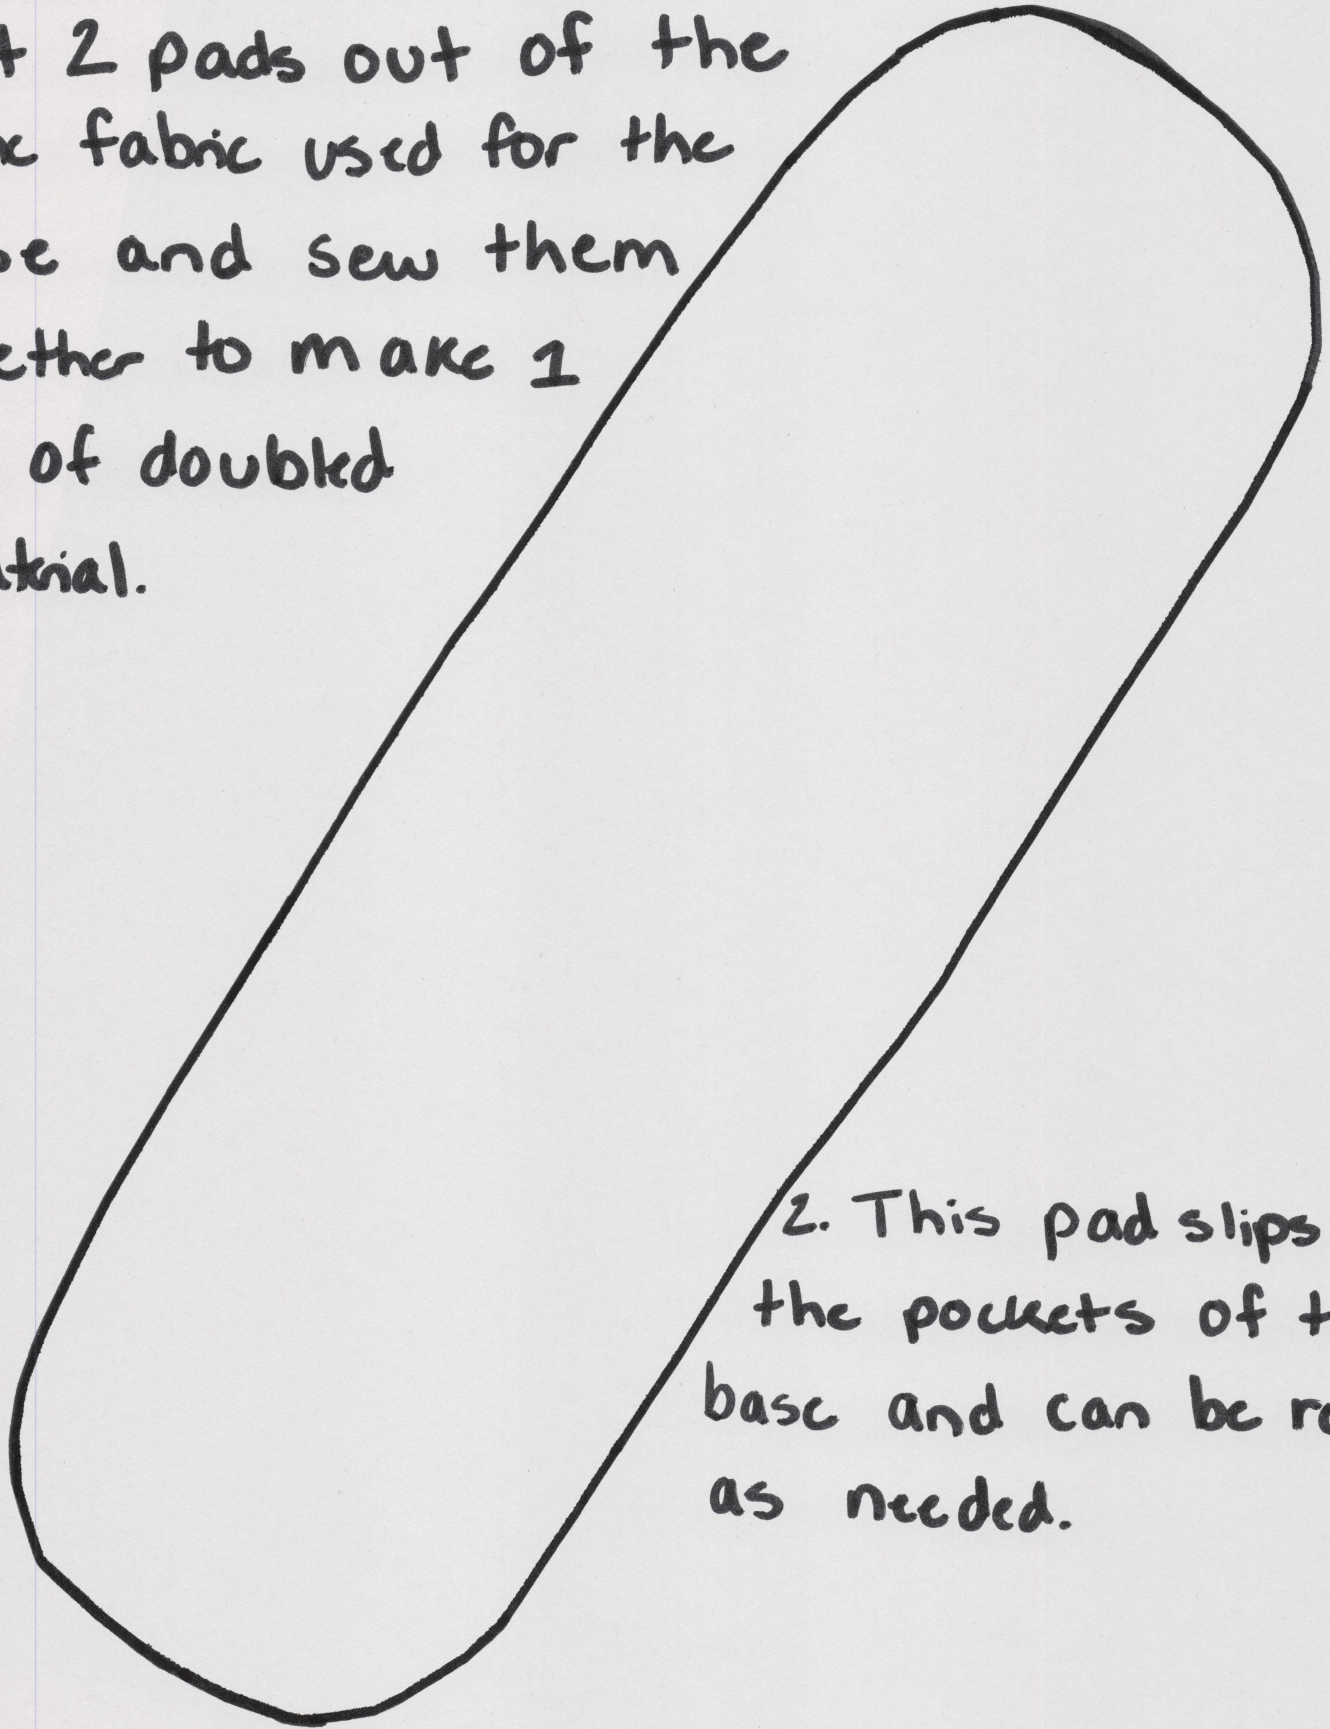 2 pads out of the
fabric used for the
and sew them
to make 1
of doubled
2. This pad slips
the pockets of
base and can be
as needed.